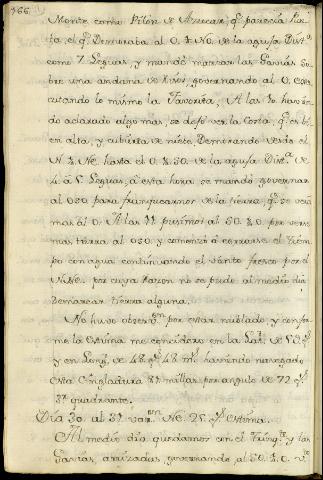 166
Monte como Pilon de Azucar, q.e parecia Isla,
el q.e Demoraba al O. ¼ NO. de la aguja Dist.a
como 7 Leguas, y mandó marear las Gavias so-
bre una andana de rizos, governando al O. exe-
cutando lo mismo la Favorita, A las 10 havien-
do aclarado algo mas, se dejó ver la Costa, q.e es b.n
en alta, y cubierta de nieve Demorando desde el
N. hasta el O. de la aguja Dist.a de
4. á 5. Leguas, á esta hora se mandó governar
al OSO para franquearnos de la tierra, q.e se veia
mas al O. A las 11 pusimos al SO. ¼ O. por verse
mas tierra al OSO y comenzó á cerrarse el tiem-
po con agua continuando el viento fresco por el
NNE. por cuya razon no se pudo al medio dia
Demarcar tierra alguna.
No huvo observ.on por estar nublado, y confor-
me la estima me concidero en la Lat.d de
y en Long.d de 48 g.s 48 m.s haviendo navegado
esta Singladura 87 millas por angulo de 72 g.s
3.r quadrante.
Dia 30. al 31. var.on NE. 25 g.s estima.
Al medio dia quedamos con el trinq.te y las
Gavias, arrizadas, governando al SO. ¼ O. v.to